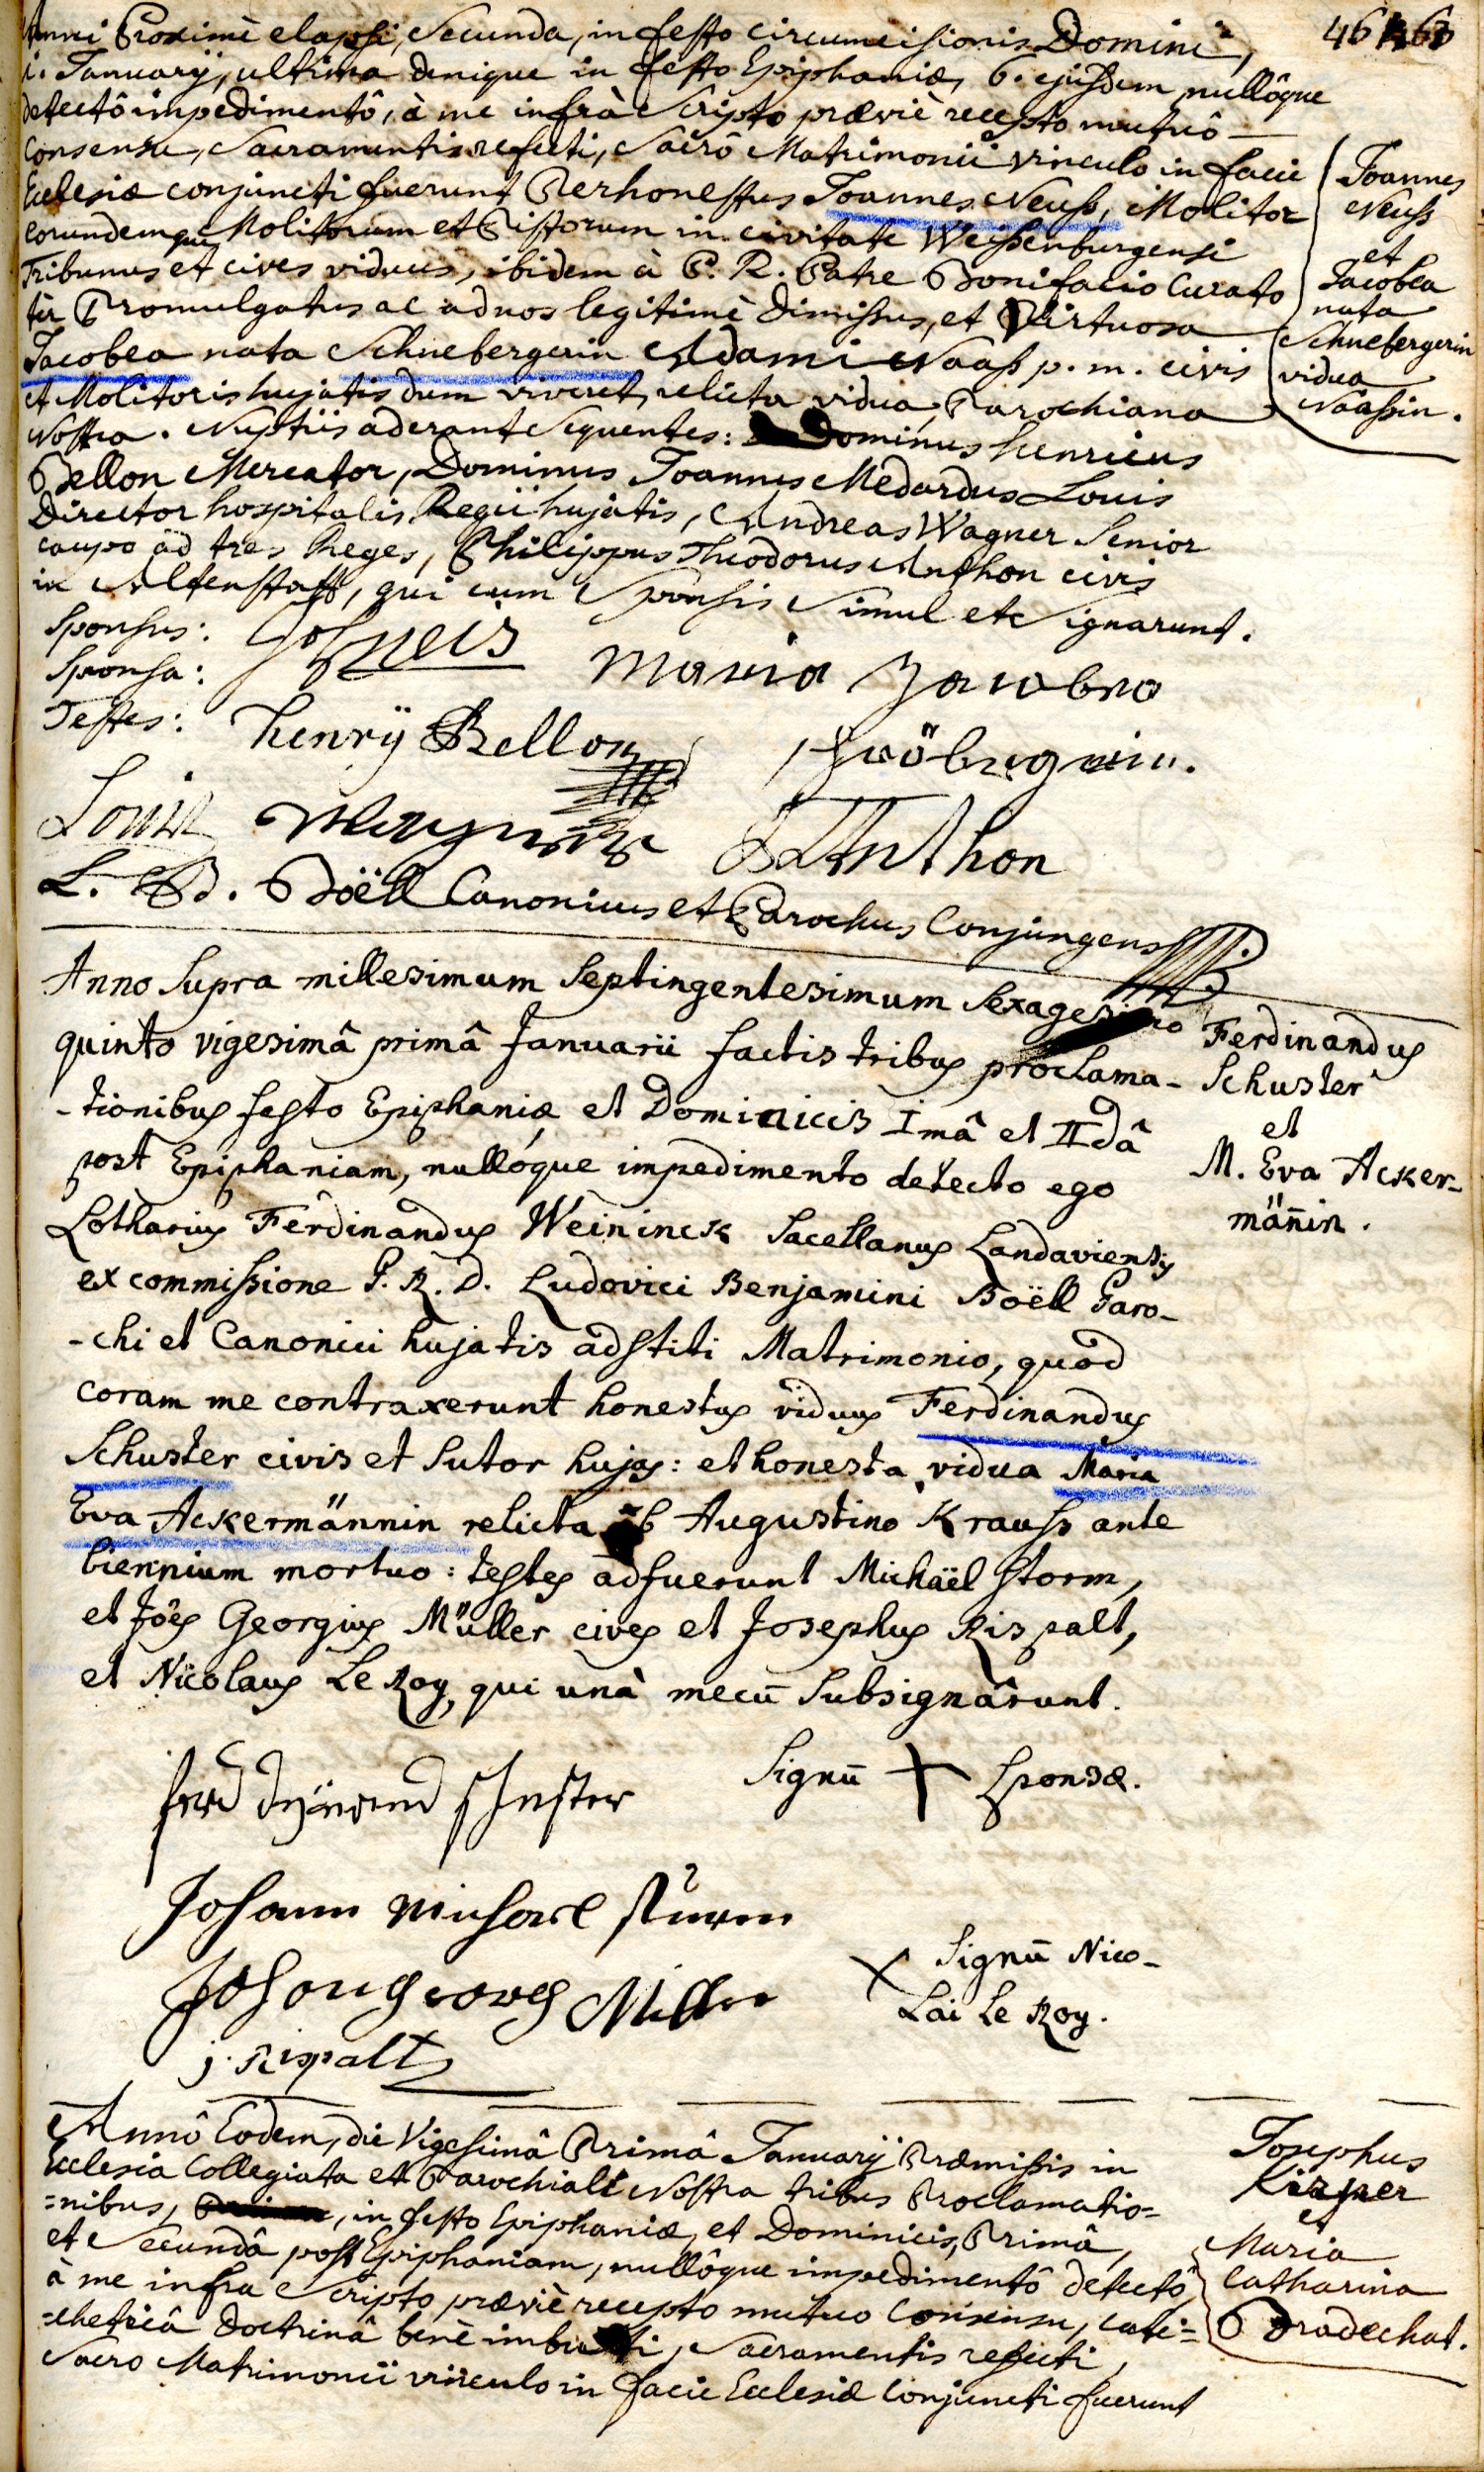 Anni Proximè elapsi, Secunda, in festo Circumcisionis Domini,
1. Januarij, ultima denique in festo Epiphaniæ, 6. ejusdem nullôque
detectô impedimentô, à me infrà Scripto, præviè recepto mutuô
Consensu, Sacramentis refecti, Sacrô Matrimonii vinculo in facie
Ecclesiæ conjuncti fuerunt Perhonestus Joannes Neuss, Molitor
eorundemque Molitorum et Pistorum in civitate Weissenburgensi
Tribunus et cives viduus, ibidem à P. R. Patre Bonifacio Curato
ter Promulgatus ac ad nos legitimè dimissus, et Virtuosa
Jacobea nata Schnebergerin Adami Naass p. m. civis
et Molitoris hujatis dum viveret, relicta vidua, Parochiana
Nostra. Nuptiis aderant Sequentes: Dominus Henricus
Bellon Mercator, Dominus Joannes Medardus Louis
Director hospitalis Regii hujatis, Andreas Wagner Senior
caupo ad tres Reges, Philippus Theodorus Anthon civis
in Altenstatt, qui cum Sponsis Simul et Signarunt.
Joannes
Neuss
et
Jacobea
nata
Schnebergerin
vidua
Naassin.
Sponsus: Joh neis
Sponsa: Maria Jacobea
Testes: henrÿ Bellon
Louis Wagner Anthon
L. B. Böell Canonicus et Parochus Conjungens
Anno Supra millesimum Septingentesimum Sexagesimo
quinto vigesimâ primâ Januarii factis tribus proclama-
-tionibus festo Epiphaniæ et Dominicis Imâ et IIdâ
post Epiphaniam, nullóque impedimento detecto ego
Lotharius Ferdinandus Weininck Sacellanus Landaviensis
ex commissione P. R. D. Ludovici Benjamini Boëll Paro-
-chi et Canonici hujatis adstiti Matrimonio, quod
coram me contraxerunt honestus viduus Ferdinandus
Schuster civis et Sutor hujas: et honesta vidua Maria
Eva Ackermännin relicta ab Augustino Krauss ante
biennium mortuo: testes adfuerunt Michaël Storm,
et Jôes Georgius Müller cives et Josephus Rispalt,
et Nicolaus Le Roy, qui unà mecū Subsignârunt.
Ferdinandus
Schuster
et
M. Eva Acker-
mäñin.
Signū + Sponsæ.
ferdinand schuster
Johann Michael sturm
Johan georg Miller
x Signū Nico-
Lai Le Roy.
j. Rispalt
Annô Eodem, die Vigesimâ Primâ Januarij Præmissis in
Ecclesia Collegiata et Parochiali Nostra tribus Proclamatio=
=nibus, in festo Epiphaniæ, et Dominicis, Primâ,
et Secundâ post Epiphaniam, nullôque impedimentô detectô,
à me infra Scripto præviè recepto mutuo Consensu, cate=
=chetricâ Doctrinâ benè imbuti, Sacramentis refecti,
Sacro Matrimonii vinculo in facie Ecclesiæ Conjuncti fuerunt
Josephus
Kirper
et
Maria
Catharina
Bradechat.